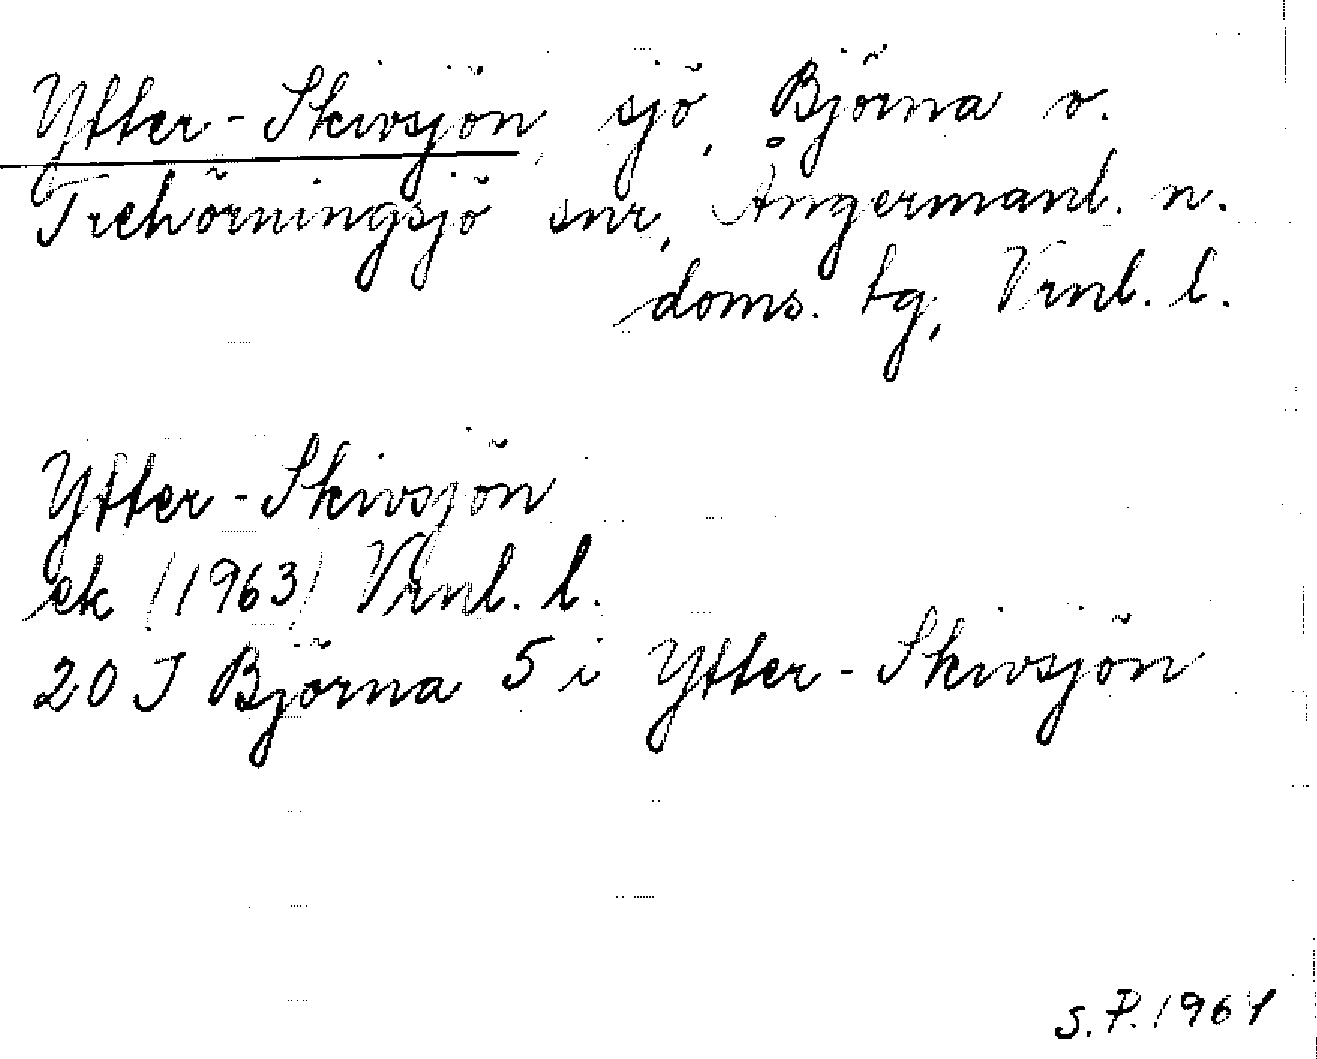 Ytter-Skivsjön, sjö, Björna o.
Trehörningsjö snr, Ångermanl. n.
doms. tg, Vrnl. l.
Ytter-Skivsjön
ek (1963) Vrnl. l.
20 J Björna 5 i Ytter-Skivsjön
S.P. 1964